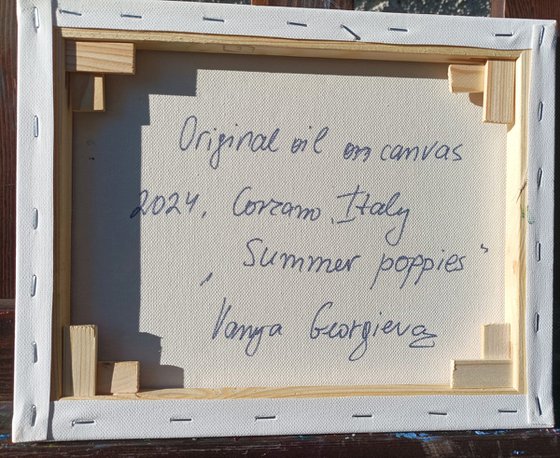 Original oil on canvas
2024, Corzano, Italy
„Summer poppies“
Vanya Georgieva